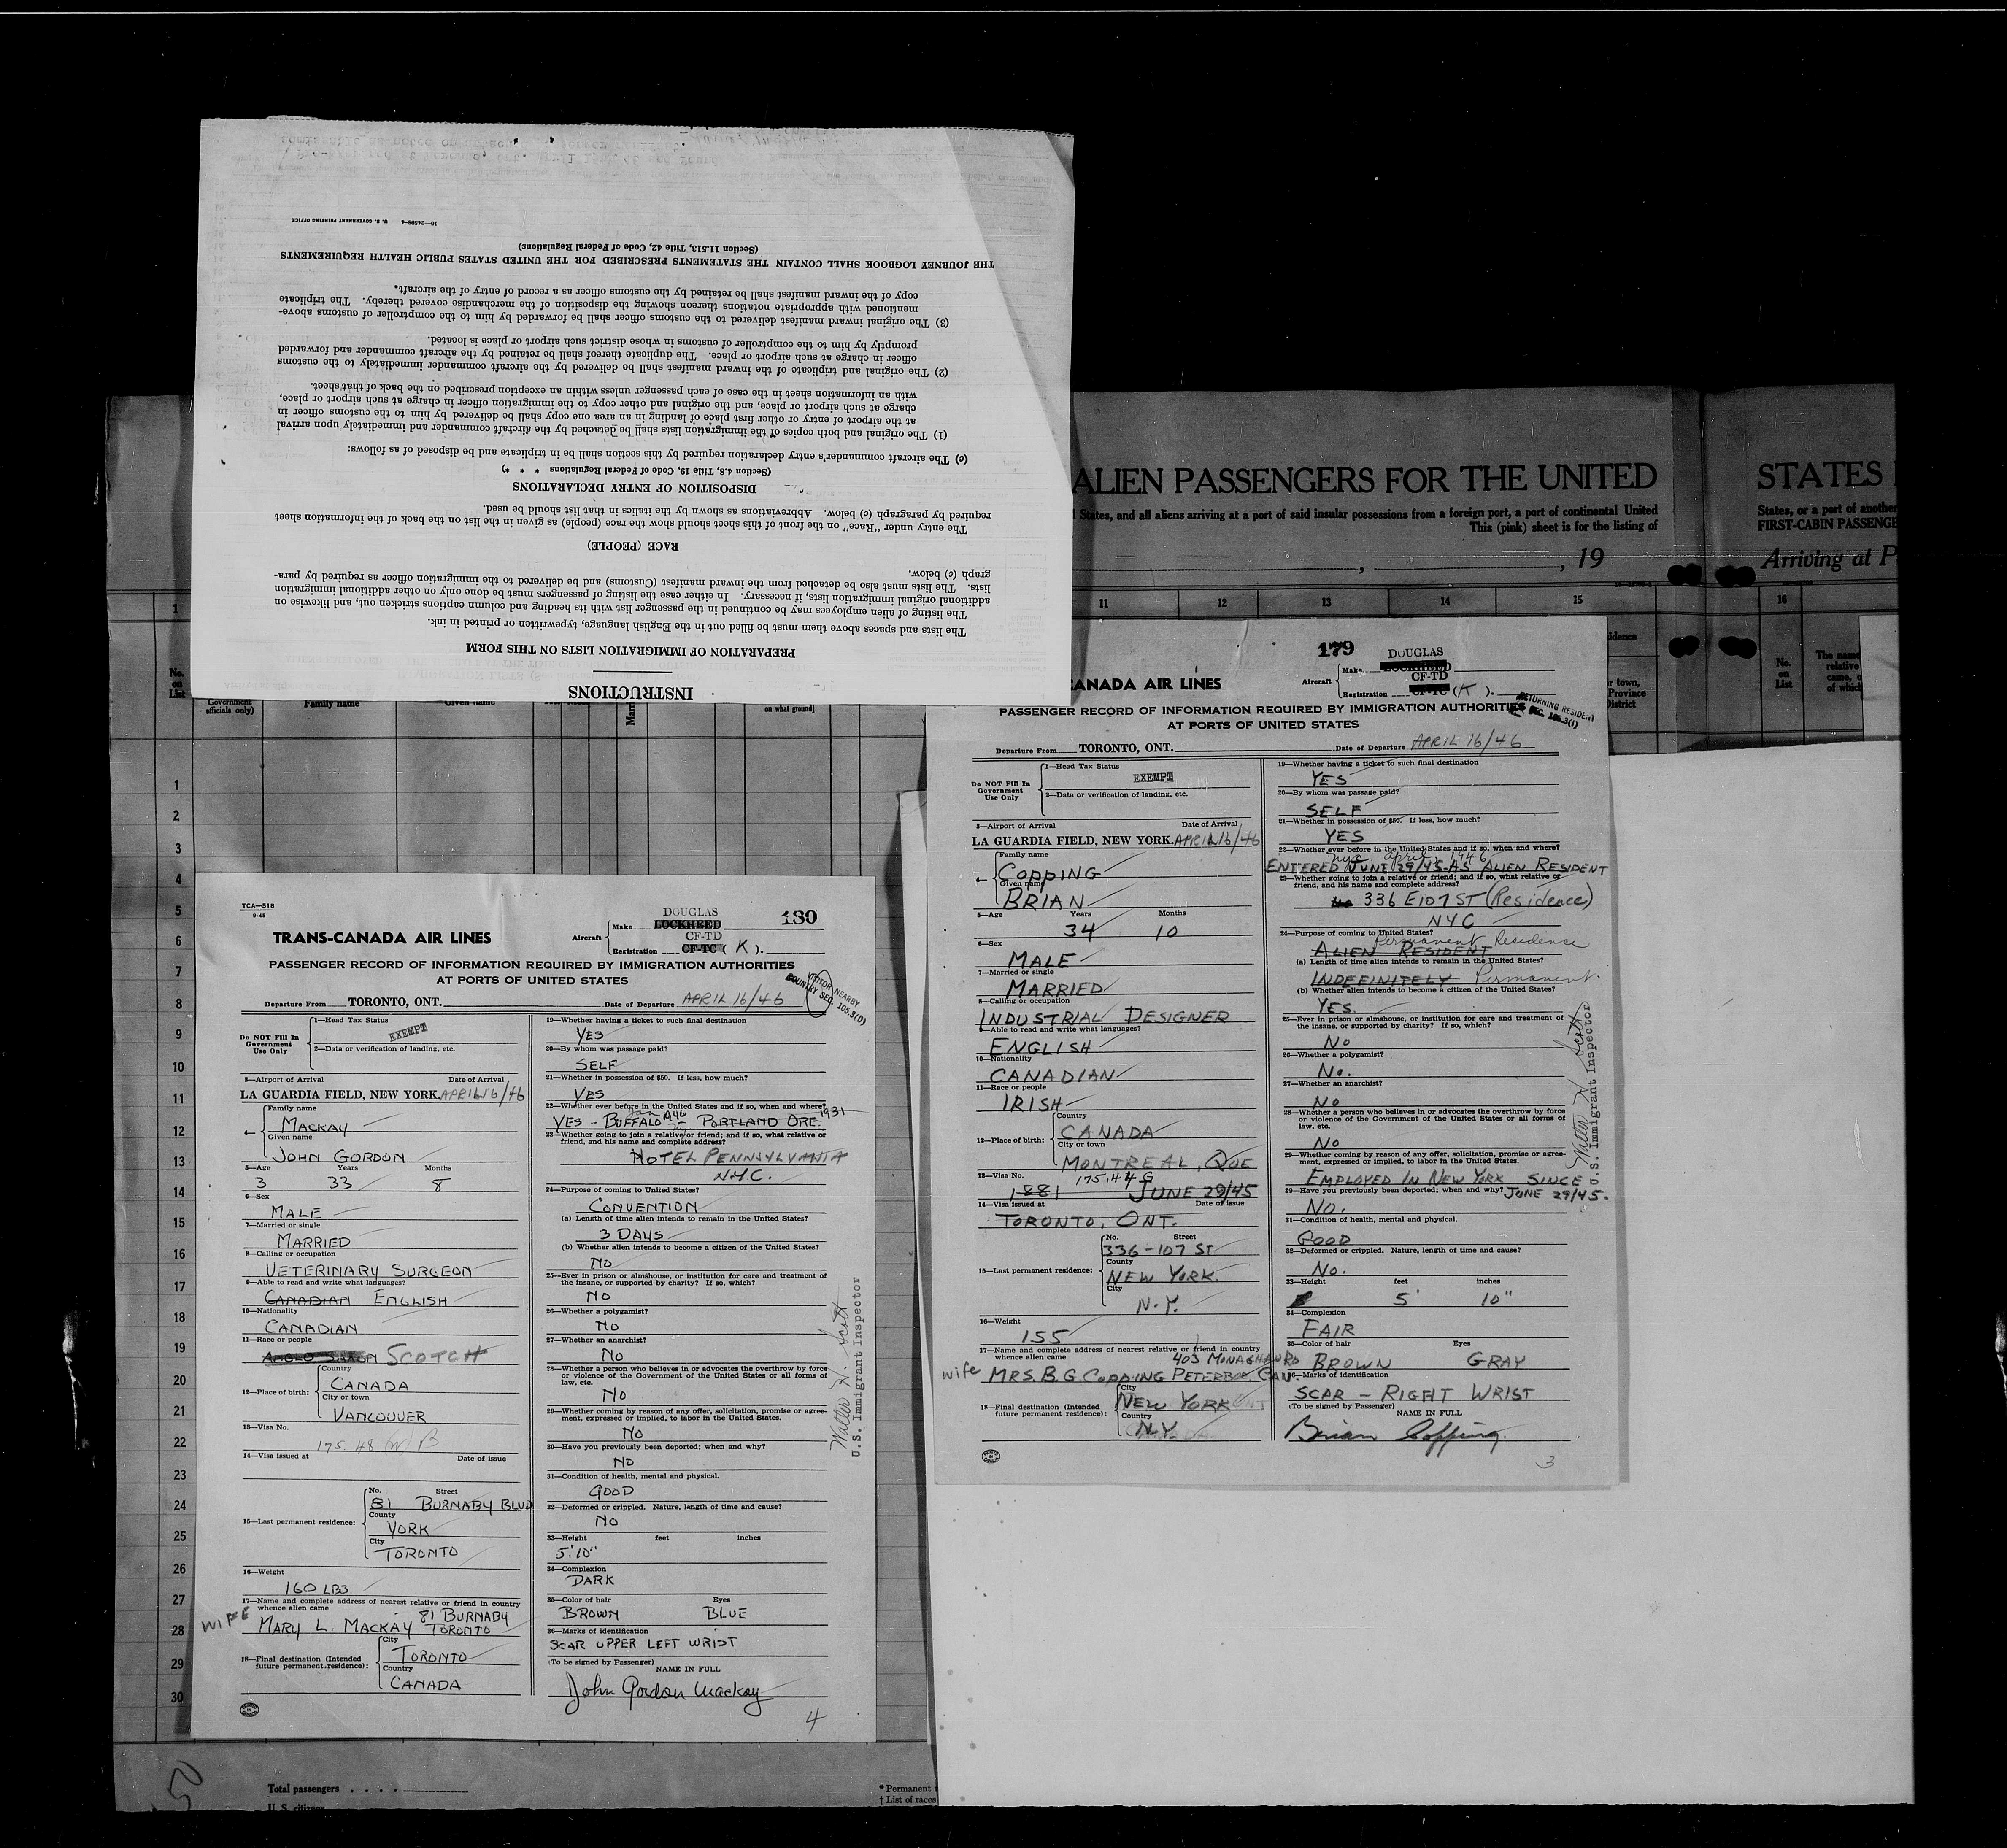 INSTRUCTIONS
PREPARATION OF IMMIGRATION LISTS ON THIS FORM
The lists and spaces above them must be filled out in the English language, typewritten or printed in ink.
The listing of alien employees may be continued in the passenger list with its heading and column captions stricken out, and likewise on
additional original immigration lists, if necessary. In either case the listing of passengers must be done only on other additional immigration
lists. The lists must also be detached from the inward manifest (Customs) and be delivered to the immigration officer as required by para-
graph (c) below.
RACE (PEOPLE)
The entry under "Race" on the front of this sheet should show the race (people) as given in the list on the back of the information sheet
required by paragraph (c) below. Abbreviations as shown by the italics in that list should be used.
DISPOSITION OF ENTRY DECLARATIONS
(Section 4.8, Title 19, Code of Federal Regulations * * *)
(c) The aircraft commander's entry declaration required by this section shall be in triplicate and be disposed of as follows:
(1) The original and both copies of the immigration lists shall be detached by the aircraft commander and immediately upon arrival
at the airport of entry or other first place of landing in an area one copy shall be delivered by him to the customs officer in
charge at such airport or place, and the original and other copy to the immigration officer in charge at such airport or place,
with an information sheet in the case of each passenger unless within an exception prescribed on the back of that sheet.
(2) The original and triplicate of the inward manifest shall be delivered by the aircraft commander immediately to the customs
officer in charge at such airport or place. The duplicate thereof shall be retained by the aircraft commander and forwarded
promptly by him to the comptroller of customs in whose district such airport or place is located.
(3) The original inward manifest delivered to the customs officer shall be forwarded by him to the comptroller of customs above-
mentioned with appropriate notations thereon showing the disposition of the merchandise covered thereby. The triplicate
copy of the inward manifest shall be retained by the customs officer as a record of entry of the aircraft.
THE JOURNEY LOGBOOK SHALL CONTAIN THE STATEMENTS PRESCRIBED FOR THE UNITED STATES PUBLIC HEALTH REQUIREMENTS
(Section 11.513, Title 42, Code of Federal Regulations)
U. S. GOVERNMENT PRINTING OFFICE 16—24598-4
ALIEN PASSENGERS FOR THE UNITED
STATES
States, and all aliens arriving at a port of said insular possessions from a foreign port, a port of continental United
This (pink) sheet is for the listing of
States, or a port of another
FIRST-CABIN PASSENGE
, 19
Arriving at P
11 12 13 14 15 16
No. on List
The name
relative
came, o
of which
No. on List
Government officials only)
Family name
Given name
on what ground]
1
2
3
4
5
6
7
8
9
10
11
12
13
14
15
16
17
18
19
20
21
22
23
24
25
26
27
28
29
30
Total passengers . . . .
U. S. citizens
* Permanent
† List of races
TCA—518
9-45
DOUGLAS
130
TRANS-CANADA AIR LINES
Aircraft Make LOCKHEED
CF-TD
Registration CF-TC (K).
PASSENGER RECORD OF INFORMATION REQUIRED BY IMMIGRATION AUTHORITIES
AT PORTS OF UNITED STATES
VISITOR NEARBY
COUNTRY SEC. 105.3(D)
Departure From TORONTO, ONT. Date of Departure APRIL 16/46
Do NOT Fill In Government Use Only
1—Head Tax Status
EXEMPT
2—Data or verification of landing, etc.
3—Airport of Arrival Date of Arrival
LA GUARDIA FIELD, NEW YORK. APRIL 16/46
Family name
MACKAY
Given name
JOHN GORDON
5—Age Years Months
3 33 8
6—Sex
MALE
7—Married or single
MARRIED
8—Calling or occupation
VETERINARY SURGEON
9—Able to read and write what languages?
CANADIAN ENGLISH
10—Nationality
CANADIAN
11—Race or people
ANGLO SAXON SCOTCH
12—Place of birth:
Country
CANADA
City or town
VANCOUVER
13—Visa No.
175.48
14—Visa issued at Date of issue
15—Last permanent residence:
No. Street
81 BURNABY BLVD
County
YORK
City
TORONTO
16—Weight
160 LBS
17—Name and complete address of nearest relative or friend in country
whence alien came
81 BURNABY
WIFE MARY L. MACKAY TORONTO
18—Final destination (Intended future permanent residence):
City
TORONTO
Country
CANADA
19—Whether having a ticket to such final destination
YES
20—By whom was passage paid?
SELF
21—Whether in possession of $50. If less, how much?
YES
22—Whether ever before in the United States and if so, when and where?
YES - BUFFALO - PORTLAND ORE. 1931
23—Whether going to join a relative or friend; and if so, what relative or
friend, and his name and complete address?
HOTEL PENNSYLVANIA
N.Y.C.
24—Purpose of coming to United States?
CONVENTION
(a) Length of time alien intends to remain in the United States?
3 DAYS
(b) Whether alien intends to become a citizen of the United States?
NO
25—Ever in prison or almshouse, or institution for care and treatment of
the insane, or supported by charity? If so, which?
NO
26—Whether a polygamist?
NO
27—Whether an anarchist?
NO
28—Whether a person who believes in or advocates the overthrow by force
or violence of the Government of the United States or all forms of
law, etc.
NO
29—Whether coming by reason of any offer, solicitation, promise or agree-
ment, expressed or implied, to labor in the United States.
NO
30—Have you previously been deported; when and why?
NO
31—Condition of health, mental and physical.
GOOD
32—Deformed or crippled. Nature, length of time and cause?
NO
33—Height feet inches
5'10"
34—Complexion
DARK
35—Color of hair Eyes
BROWN BLUE
36—Marks of identification
SCAR UPPER LEFT WRIST
(To be signed by Passenger)
NAME IN FULL
John Gordon Mackay
4
Walter N. Scott
U.S. Immigrant Inspector
179
DOUGLAS
CANADA AIR LINES
Aircraft Make LOCKHEED
CF-TD
Registration CF-TC (K).
PASSENGER RECORD OF INFORMATION REQUIRED BY IMMIGRATION AUTHORITIES
AT PORTS OF UNITED STATES
RETURNING RESIDENT
SEC. 105.3(1)
Departure From TORONTO, ONT. Date of Departure APRIL 16/46
Do NOT Fill In Government Use Only
1—Head Tax Status
EXEMPT
2—Data or verification of landing, etc.
3—Airport of Arrival Date of Arrival
LA GUARDIA FIELD, NEW YORK. APRIL 16/46
Family name
COPPING
Given name
BRIAN
5—Age Years Months
34 10
6—Sex
MALE
7—Married or single
MARRIED
8—Calling or occupation
INDUSTRIAL DESIGNER
9—Able to read and write what languages?
ENGLISH
10—Nationality
CANADIAN
11—Race or people
IRISH
12—Place of birth:
Country
CANADA
City or town
MONTREAL, QUE
13—Visa No.
175.44 G
1881 JUNE 29/45
14—Visa issued at Date of issue
TORONTO, ONT.
15—Last permanent residence:
No. Street
336-107 ST
County
NEW YORK.
City
N.Y.
16—Weight
155
17—Name and complete address of nearest relative or friend in country
whence alien came
403 MONAGHAN RD
wife MRS. B. G. COPPING PETERBORO CAN
18—Final destination (Intended future permanent residence):
City
NEW YORK
Country
N.Y.
19—Whether having a ticket to such final destination
YES
20—By whom was passage paid?
SELF
21—Whether in possession of $50. If less, how much?
YES
22—Whether ever before in the United States and if so, when and where?
nyc. april 1946
ENTERED JUNE 29/45-AS ALIEN RESIDENT
23—Whether going to join a relative or friend; and if so, what relative or
friend, and his name and complete address?
336 E107 ST (Residence)
NYC
24—Purpose of coming to United States?
Permanent Residence
ALIEN RESIDENT
(a) Length of time alien intends to remain in the United States?
INDEFINITELY Permanent.
(b) Whether alien intends to become a citizen of the United States?
YES.
25—Ever in prison or almshouse, or institution for care and treatment of
the insane, or supported by charity? If so, which?
No
26—Whether a polygamist?
No.
27—Whether an anarchist?
No
28—Whether a person who believes in or advocates the overthrow by force
or violence of the Government of the United States or all forms of
law, etc.
No
29—Whether coming by reason of any offer, solicitation, promise or agree-
ment, expressed or implied, to labor in the United States.
EMPLOYED IN NEW YORK SINCE
29—Have you previously been deported; when and why? JUNE 29/45.
No.
31—Condition of health, mental and physical.
GOOD
32—Deformed or crippled. Nature, length of time and cause?
No.
33—Height feet inches
5' 10"
34—Complexion
FAIR
35—Color of hair Eyes
BROWN GRAY
36—Marks of identification
SCAR - RIGHT WRIST
(To be signed by Passenger)
NAME IN FULL
Brian Copping.
3
Walter N. Scott
U.S. Immigrant Inspector